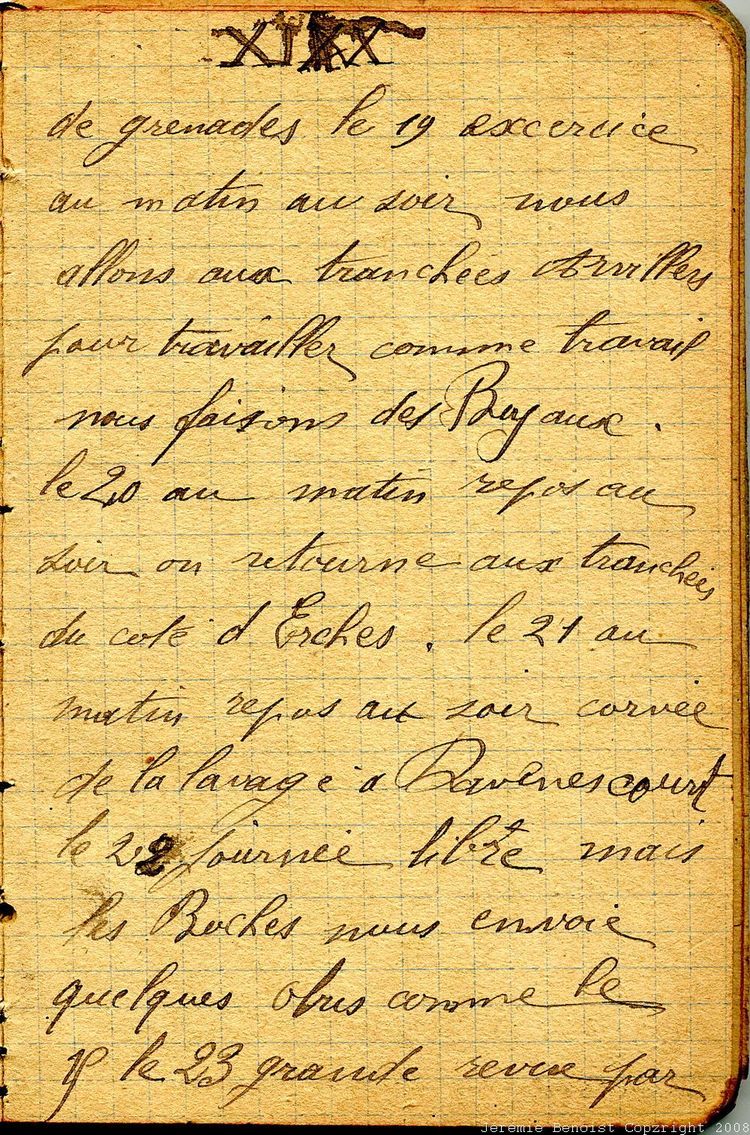 XIXX
de grenades le 19 excercice
au matin au soir nous
allons aux tranchées Arvillers
pour travailler comme travail
nous faisions des Boyaux.
le 20 au matin repos au
soir on retourne aux tranchées
du coté d'Erches. le 21 au
matin repos au soir corvée
de la lavage à Davenescourt
le 22 journée libre mais
les Boches nous envoie
quelques obus comme le
le 23 grande revue par
Jeremie Benoist Copzright 2008